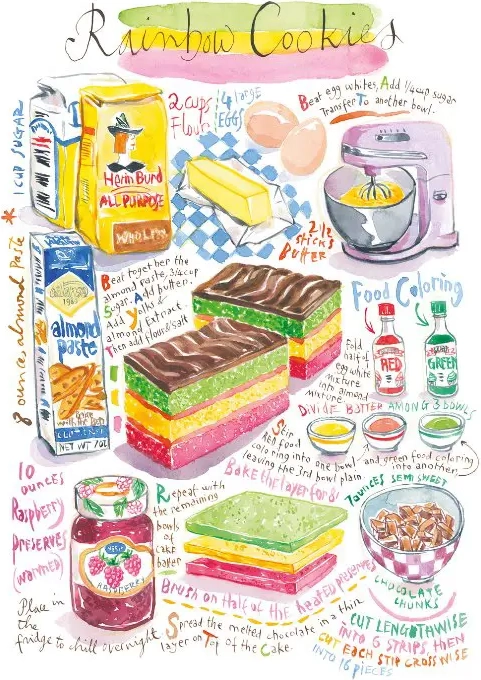 Rainbow Cookies
* 1 CUP SUGAR
2 cups
Flour
4 large
EGGS
Beat egg whites, Add 1/4 cup sugar
Transfer To another bowl.
Herm Burd
ALL PURPOSE
2 1/2
sticks
Butter
8 ounces almond Paste
almond
paste
NET WT 7OZ
Beat together the
almond paste, 3/4 cup
Sugar. Add butter.
Add yolks &
almond Extract.
Then add flour & salt
Food Coloring
Fold
half of
egg white
mixture
into almond
mixture
RED
GREEN
DIVIDE BATTER AMONG 3 BOWLS
Stir
red food
coloring into one bowl and green food coloring
into another,
leaving the 3rd bowl plain
Bake the layer for 8'
10
ounces
Raspberry
preserves
(warmed)
RASPBERRY
Repeat with
the remaining
bowls
of
cake
batter
7 OUNCES SEMI SWEET
CHOCOLATE
CHUNKS
Brush on Half of the heated preserves
Place in
the
fridge to chill overnight
Spread the melted chocolate in a thin
layer on Top of the Cake.
CUT LENGTHWISE
INTO 6 STRIPS, THEN
CUT EACH STIP CROSSWISE
INTO 16 PIECES